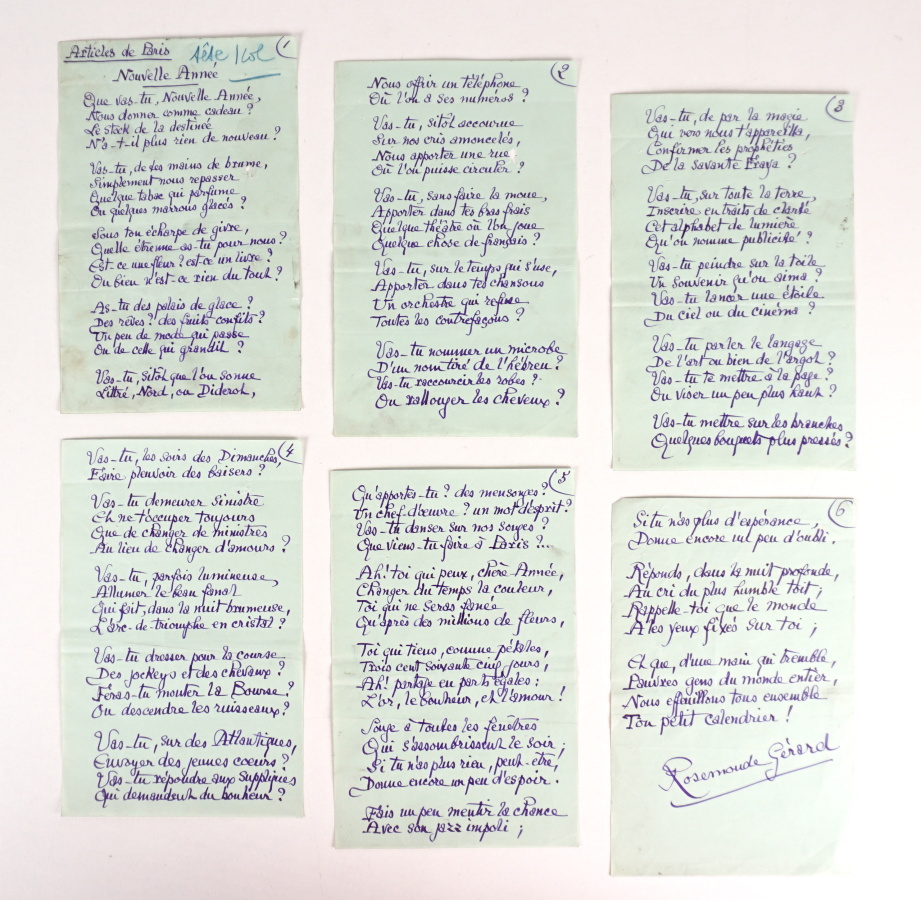 Articles de Paris
tête 1 col
1
Nouvelle Année
Que vas-tu, Nouvelle Année,
Nous donner comme cadeau ?
Le stock de la destinée
N'a-t-il plus rien de nouveau ?
Vas-tu, de tes mains de brume,
Simplement nous repasser
Quelque tabac qui parfume
Ou quelques marrons glacés ?
Sous ton écharpe de givre,
Quelle étrenne as-tu pour nous ?
Est-ce une fleur ? est-ce un livre ?
Ou bien n'est-ce rien du tout ?
As-tu des palais de glace ?
Des rêves ? des fruits confits ?
Un peu de mode qui passe
Ou de celle qui grandit ?
Vas-tu, sitôt que l'on sonne
Littré, Nord, ou Diderot,
2
Nous offrir un téléphone
Où l'on a ses numéros ?
Vas-tu, sitôt accourue
Sur nos cris amoncelés,
Nous apporter une rue
Où l'on puisse circuler ?
Vas-tu, sans faire la moue,
Apporter dans tes bras frais
Quelque théâtre où l'on joue
Quelque chose de français ?
Vas-tu, sur le temps qui s'use,
Apporter dans tes chansons
Un orchestre qui refuse
Toutes les contrefaçons ?
Vas-tu nommer un microbe
D'un nom tiré de l'hébreu ?
Vas-tu raccourcir les robes ?
Ou rallonger les cheveux ?
3
Vas-tu, de par la magie
Qui vers nous t'appareilla,
Confirmer les prophéties
De la savante Fraya ?
Vas-tu, sur toute la terre,
Inscrire en traits de clarté
Cet alphabet de lumière
Qu'on nomme publicité ?
Vas-tu peindre sur la toile
Un souvenir qu'on aima ?
Vas-tu lancer une étoile
Du ciel ou du cinéma ?
Vas-tu parler le langage
De l'art ou bien de l'argot ?
Vas-tu te mettre à la page ?
Ou viser un peu plus haut ?
Vas-tu mettre sur les branches
Quelques bouquets plus pressés ?
4
Vas-tu, les soirs des Dimanches,
Faire pleuvoir des baisers ?
Vas-tu demeurer sinistre
Et ne t'occuper toujours
Que de changer de ministres
Au lieu de changer d'amours ?
Vas-tu, parfois lumineuse,
Allumer le beau fanal
Qui fait, dans la nuit brumeuse,
L'arc-de-triomphe en cristal ?
Vas-tu dresser pour la course
Des jockeys et des chevaux ?
Feras-tu monter la Bourse ?
Ou descendre les ruisseaux ?
Vas-tu, sur des Atlantiques,
Envoyer des jeunes coeurs ?
Vas-tu répondre aux suppliques
Qui demandent du bonheur ?
5
Qu'apportes-tu ? des mensonges ?
Un chef-d'œuvre ? un mot d'esprit ?
Vas-tu danser sur nos songes ?
Que viens-tu faire à Paris ?...
Ah! toi qui peux, chère Année,
Changer du temps la couleur,
Toi qui ne seras fanée
Qu'après des millions de fleurs,
Toi qui tiens, comme pétales,
Trois cent soixante cinq jours,
Ah! partage en parts égales :
L'or, le bonheur, et l'amour !
Songe à toutes les fenêtres
Qui s'assombrissent le soir ;
Si tu n'as plus rien, peut-être,
Donne encore un peu d'espoir.
Fais un peu mentir la chance
Avec son jazz impoli ;
6
Si tu n'as plus d'espérance,
Donne encore un peu d'oubli.
Réponds, dans la nuit profonde,
Au cri du plus humble toit ;
Rappelle-toi que le monde
A les yeux fixés sur toi ;
Et que, d'une main qui tremble,
Pauvres gens du monde entier,
Nous effeuillons tous ensemble
Ton petit calendrier !
Rosemonde Gérard